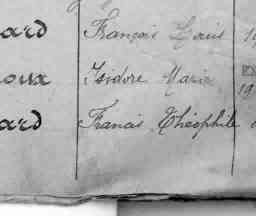 ard François Louis 19
oux Isidore Marie
19
ard Francis Théophile